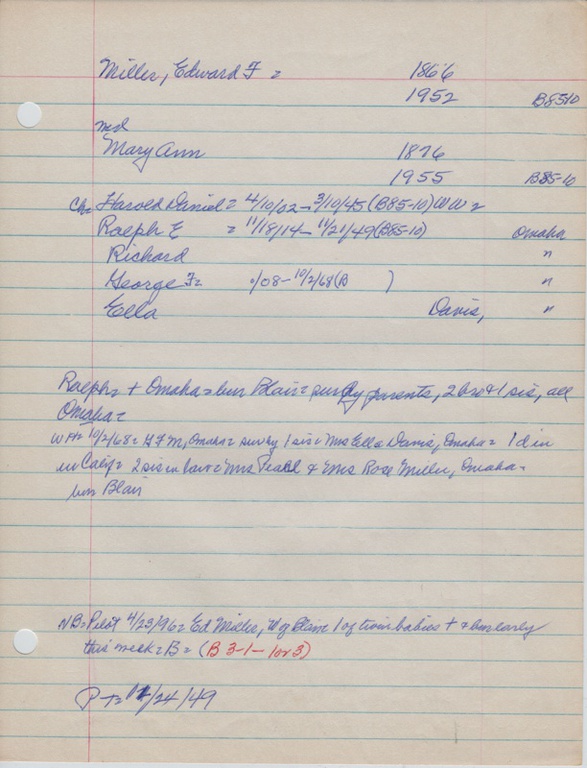 Miller, Edward F = 1866
1952 B85-10
md
Mary Ann 1876
1955 B85-10
Ch= Harold Daniel = 4/10/02 - 3/10/45 (B85-10) WW2
Ralph E = 11/18/14 - 11/21/49 (B85-10) Omaha
Richard "
George F= /08 - 10/2/68 (B ) "
Ella Davis, "
Ralph= + Omaha = bur Blair = surv by parents, 2 bro & 1 sis, all
Omaha=
WH= 10/2/68= GFM, Omaha= surv by 1 sis= Mrs Ella Davis, Omaha= 1 d in
in Calif= 2 sis in law= Mrs Pearl & Mrs Rose Miller, Omaha=
bur Blair
NB= Pilot 4/23/96= Ed Miller, W of Blair 1 of twin babies + & bur early
this week= B= (B 3-1-1 or 3)
P += /24/49